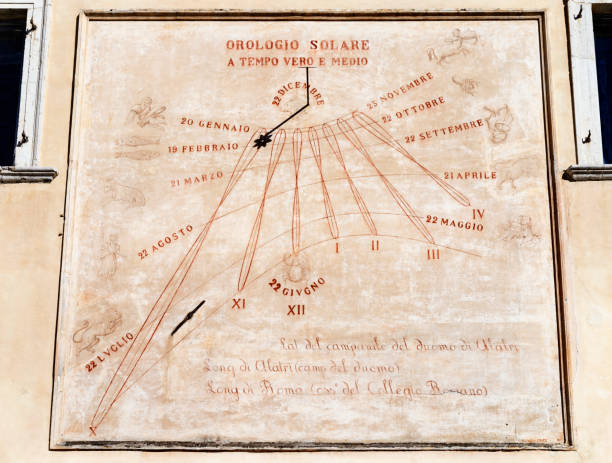 OROLOGIO SOLARE
A TEMPO VERO E MEDIO
22 DICEMBRE
23 NOVEMBRE
20 GENNAIO
22 OTTOBRE
19 FEBBRAIO
22 SETTEMBRE
21 MARZO
21 APRILE
22 AGOSTO
22 MAGGIO
22 GIUGNO
22 LUGLIO
X
XI
XII
I
II
III
IV
Lat del campanile del duomo di Alatri
Long di Alatri (camp del duomo)
Long di Roma (oss° del Collegio Romano)